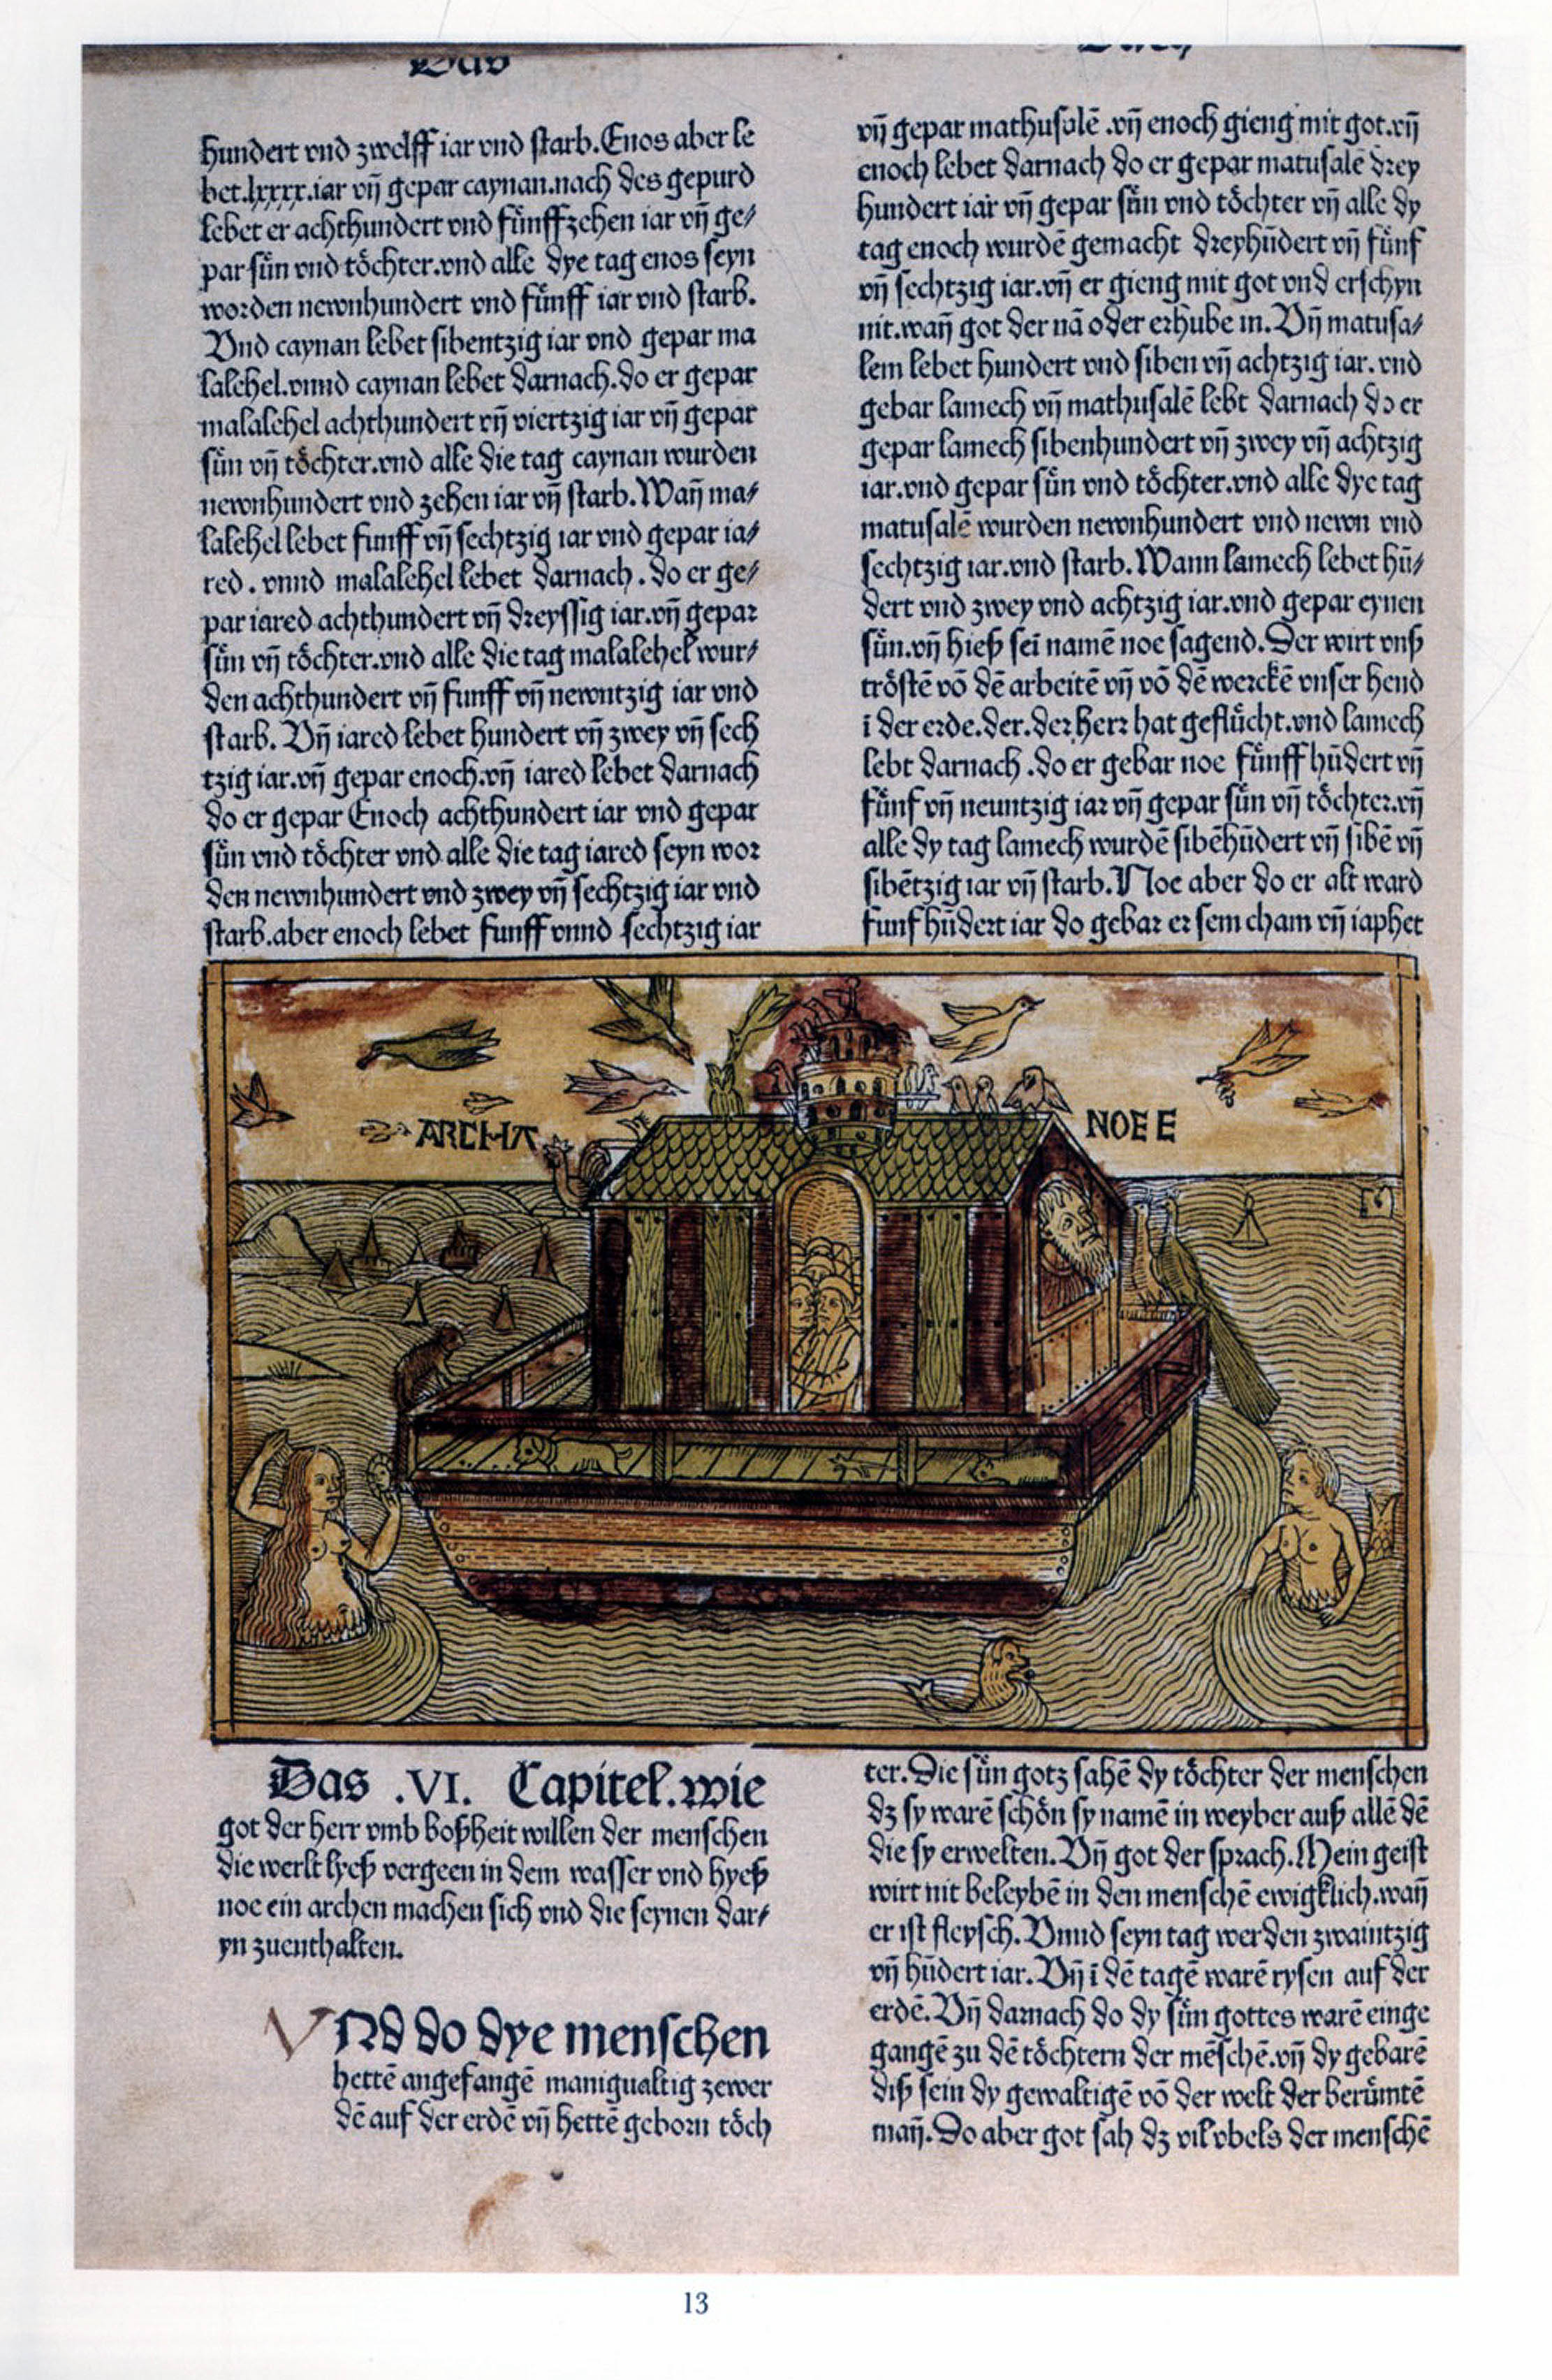 Das
hundert vnd zwelff iar vnd starb. Enos aber le
bet.lxxxx.iar vñ gepar caynan.nach des gepurd
lebet er achthundert vnd fünffzehen iar vñ ge⸗
par sün vnd töchter.vnd alle dye tag enos seyn
worden newnhundert vnd fünff iar vnd starb.
Vnd caynan lebet sibentzig iar vnd gepar ma
lalehel.vnnd caynan lebet darnach.do er gepar
malalehel achthundert vñ viertzig iar vñ gepar
sün vñ töchter.vnd alle die tag caynan wurden
newnhundert vnd zehen iar vñ starb. Wañ ma⸗
lalehel lebet funff vñ sechtzig iar vnd gepar ia⸗
red. vnnd malalehel lebet darnach. do er ge⸗
par iared achthundert vñ dreyssig iar.vñ gepar
sün vñ töchter.vnd alle die tag malalehel wur⸗
den achthundert vñ funff vñ newntzig iar vnd
starb. Vñ iared lebet hundert vñ zwey vñ sech
tzig iar.vñ gepar enoch.vñ iared lebet darnach
do er gepar Enoch achthundert iar vnd gepar
sün vnd töchter vnd alle die tag iared seyn wor
den newnhundert vnd zwey vñ sechtzig iar vnd
starb.aber enoch lebet funff vnnd sechtzig iar
vñ gepar mathusalē.vñ enoch gieng mit got.vñ
enoch lebet darnach do er gepar matusalē drey
hundert iar vñ gepar sün vnd töchter vñ alle dy
tag enoch wurdē gemacht dreyhūdert vñ fünf
vñ sechtzig iar.vñ er gieng mit got vnd erschyn
nit.wañ got der nā oder erhube in. Vñ matusa⸗
lem lebet hundert vnd siben vñ achtzig iar. vnd
gebar lamech vñ mathusalē lebt darnach do er
gepar lamech sibenhundert vñ zwey vñ achtzig
iar.vnd gepar sün vnd töchter.vnd alle dye tag
matusalē wurden newnhundert vnd newn vnd
sechtzig iar.vnd starb. Wann lamech lebet hū⸗
dert vnd zwey vnd achtzig iar.vnd gepar eynen
sün.vñ hieß sei namē noe sagend. Der wirt vnß
tröstē vō dē arbeitē vñ vō dē werckē vnser hend
ī der erde.der.der herr hat geflücht.vnd lamech
lebt darnach.do er gebar noe fünff hūdert vñ
fünf vñ neuntzig iar vñ gepar sün vñ töchter.vñ
alle dy tag lamech wurdē sibēhūdert vñ sibē vñ
sibētzig iar vñ starb. Noe aber do er alt ward
funf hūdert iar do gebar er sem cham vñ iaphet
ARCHA NOEE
Das .VI. Capitel.wie
got der herr vmb boßheit willen der menschen
die werlt lyeß vergeen in dem wasser vnd hyeß
noe ein archen machen sich vnd die seynen dar⸗
yn zuenthalten.
VNd do dye menschen
hettē angefangē manigualtig zewer
dē auf der erdē vñ hettē geborn töch
ter. Die sün gotz sahē dy töchter der menschen
dz sy warē schön sy namē in weyber auß allē dē
die sy erwelten. Vñ got der sprach. Mein geist
wirt nit beleybē in den menschē ewigklich.wañ
er ist fleysch. Vnnd seyn tag werden zwaintzig
vñ hūdert iar. Vñ ī dē tagē warē rysen auf der
erdē. Vñ darnach do dy sün gottes warē einge
gangē zu dē töchtern der mēschē.vñ dy gebarē
diß sein dy gewaltigē vō der welt der berümtē
mañ. Do aber got sah dz vil vbels der menschē
13